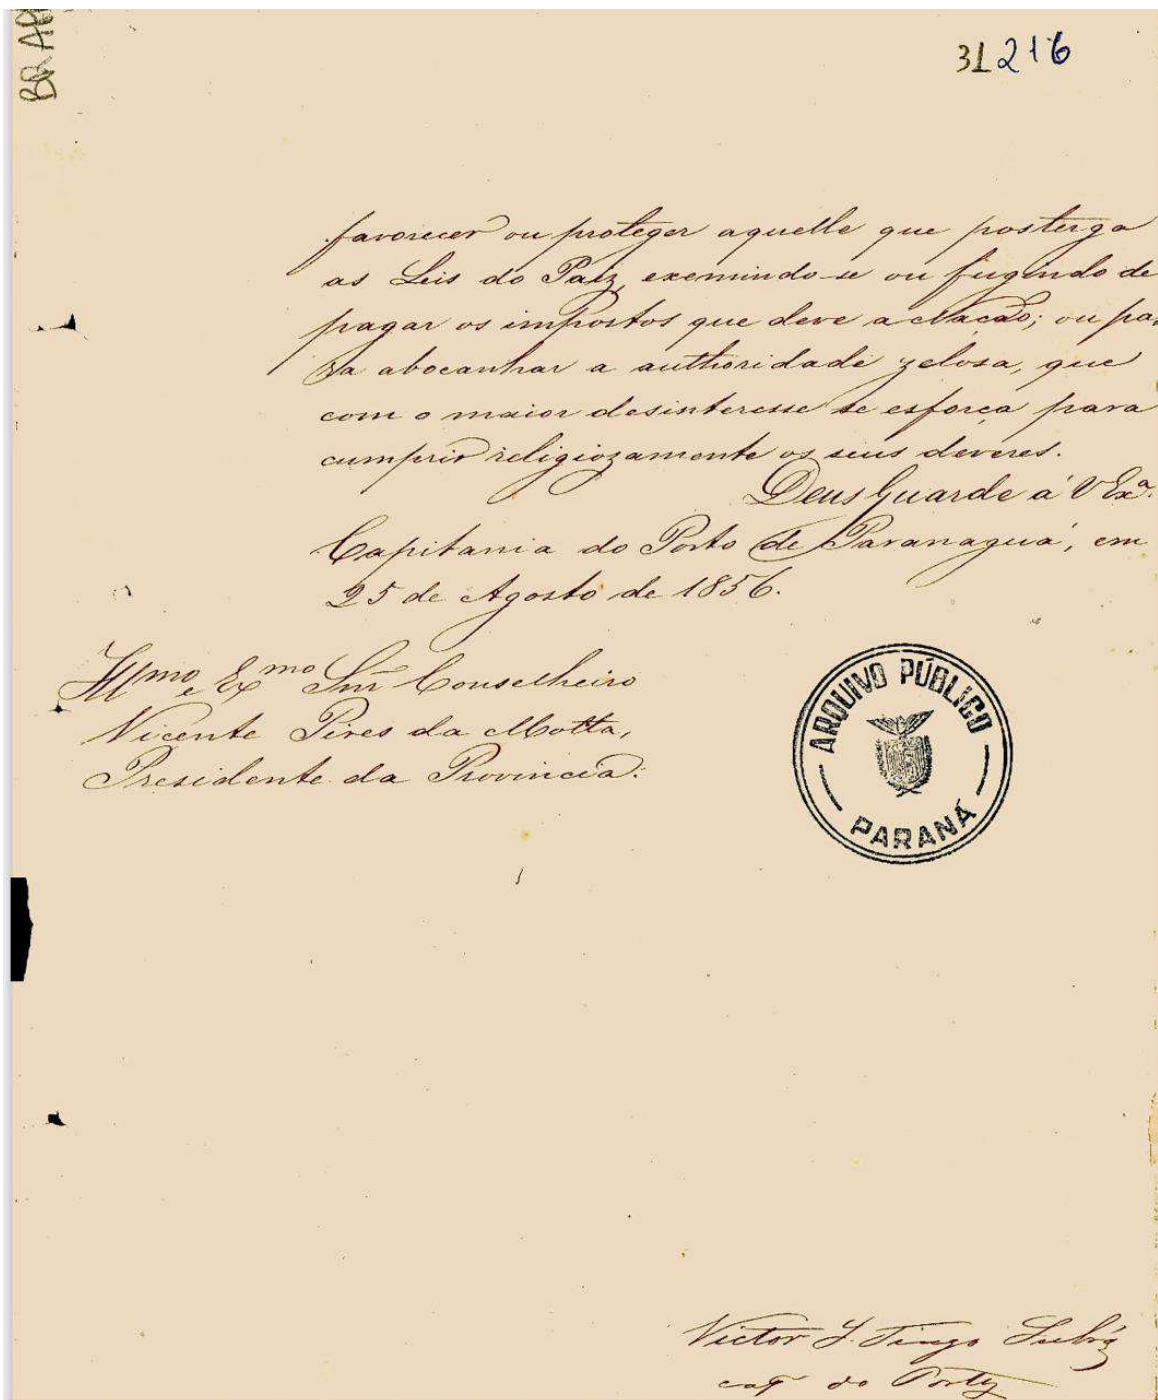 BR AP
31 216
favorecer ou proteger aquelle que posterga
as Leis do Paiz, exemindo-se ou fugindo de
pagar os impostos que deve a Nação; ou pa-
ra abocanhar a authoridade zelosa, que
com o maior desinteresse se esforça para
cumprir religiozamente os seus deveres.
Deus Guarde á V Exª.
Capitania do Porto de Paranaguá, em
25 de Agosto de 1856.
Illmo e Exmo Snr Conselheiro
Vicente Pires da Motta,
Presidente da Provincia.
ARQUIVO PÚBLICO
PARANÁ
Victor S. Tiago
cap do Porto